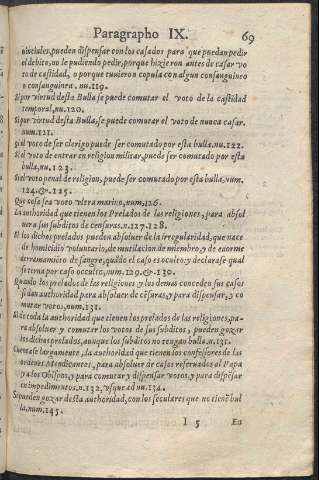 Paragrapho IX. 69
uiuelules, pueden dispensar con los casados para que puedan pedir
el debito, no le pudiendo pedir, porque hizieron antes de casar vo
to de castidad, o porque tuuieron copula con algun consanguineo
o consanguinea. nu. 119.
Si por virtud desta Bulla se puede comutar el voto de la castidad
temporal, nu. 120.
Si por virtud desta Bulla, se puede comutar el voto de nunca casar.
num. 121.
Si el voto de ser clerigo puede ser comutado por esta bulla. nu. 122.
Si el voto de entrar en religion militar, puede ser comutado por esta
bulla, nu. 123.
Si el voto penal de religion, puede ser comutado por esta bulla, num.
124. & 125.
Que cosa sea voto vltra marino, num, 126.
La authoridad que tienen los Prelados de las religiones, para absol
uer a sus subditos de censuras. n. 127. 128.
Si los dichos prelados pueden absoluer de la irregularidad, que nace
de homicidio voluntario, de mutilacion de miembro, y de enorme
derramamiẽto de sangre, quãdo el caso es oculto: y declarase qual
se terna por caso occulto, num. 129. & 130.
Quando los prelados de las religiones y los demas conceden sus casos
si dan authoridad para absoluer de cẽsuras, y para dispensar, y co
mutar votos, num. 131.
Si de toda la authoridad que tienen los prelados de las religiones, pa-
ra absoluer y comutar los votos de sus subditos, pueden gozar
los dichos prelados, aunque los subditos no tengan bulla. n. 131.
Cuentase largamente, la authoridad que tienen los confessores de las
ordenes Mendicantes, para absoluer de casos reseruados al Papa
y a los Obispos, y para comutar y dispensar votos, y para dispẽsar
en impedimentos, n. 132, vsque ad nu. 134.
Si pueden gozar desta authoridad, con los seculares que no tienẽ bul
la, num. 145.
I 5 En